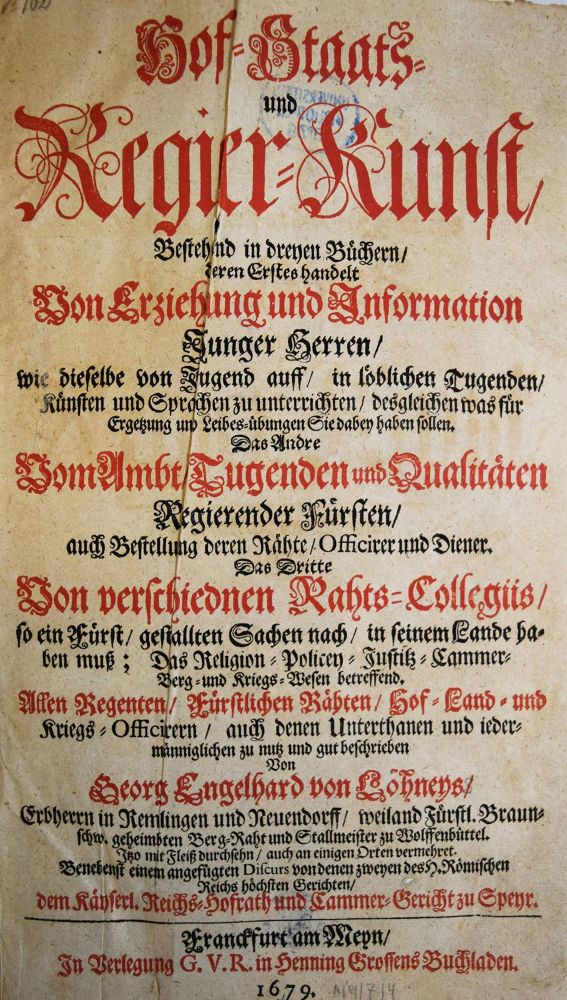 Hof-Staats-
und
Regier-Kunst/
Bestehend in dreyen Büchern/
deren Erstes handelt
Von Erziehung und Information
Junger Herren/
wie dieselbe von Jugend auff/ in löblichen Tugenden/
Künsten und Sprachen zu unterrichten/ desgleichen was für
Ergetzung und Leibes-übungen Sie dabey haben sollen.
Das Andre
Vom Ambt/ Tugenden und Qualitäten
Regierender Fürsten/
auch Bestellung deren Rähte/ Officirer und Diener.
Das Dritte
Von verschiednen Rahts-Collegiis/
so ein Fürst/ gestallten Sachen nach/ in seinem Lande ha-
ben muß; Das Religion-Policey-Justitz-Cammer-
Berg-und Kriegs-Wesen betreffend.
Allen Regenten/ Fürstlichen Rähten/ Hof-Land-und
Kriegs-Officirern/ auch denen Unterthanen und ieder-
männiglichen zu nutz und gut beschrieben
Von
Georg Engelhard von Löhneys/
Erbherrn in Remlingen und Neuendorff/ weiland Fürstl. Braun-
schw. geheimbten Berg-Raht und Stallmeister zu Wolffenbüttel.
Itzo mit Fleiß durchsehn/ auch an einigen Orten vermehret.
Benebenst einem angefügten Discurs von denen zweyen des H. Römischen
Reichs höchsten Gerichten/
dem Käyserl. Reichs-Hofrath und Cammer-Gericht zu Speyr.
Franckfurt am Meyn/
In Verlegung G. V. R. in Henning Grossens Buchladen.
1679.